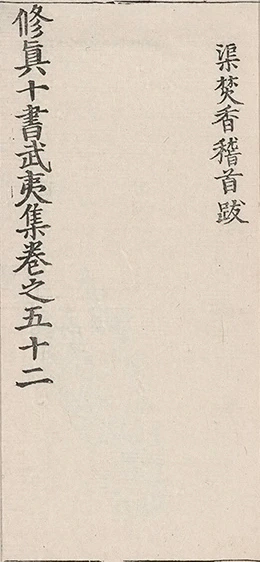 渠焚香稽首跋
修真十書武夷集卷之五十二